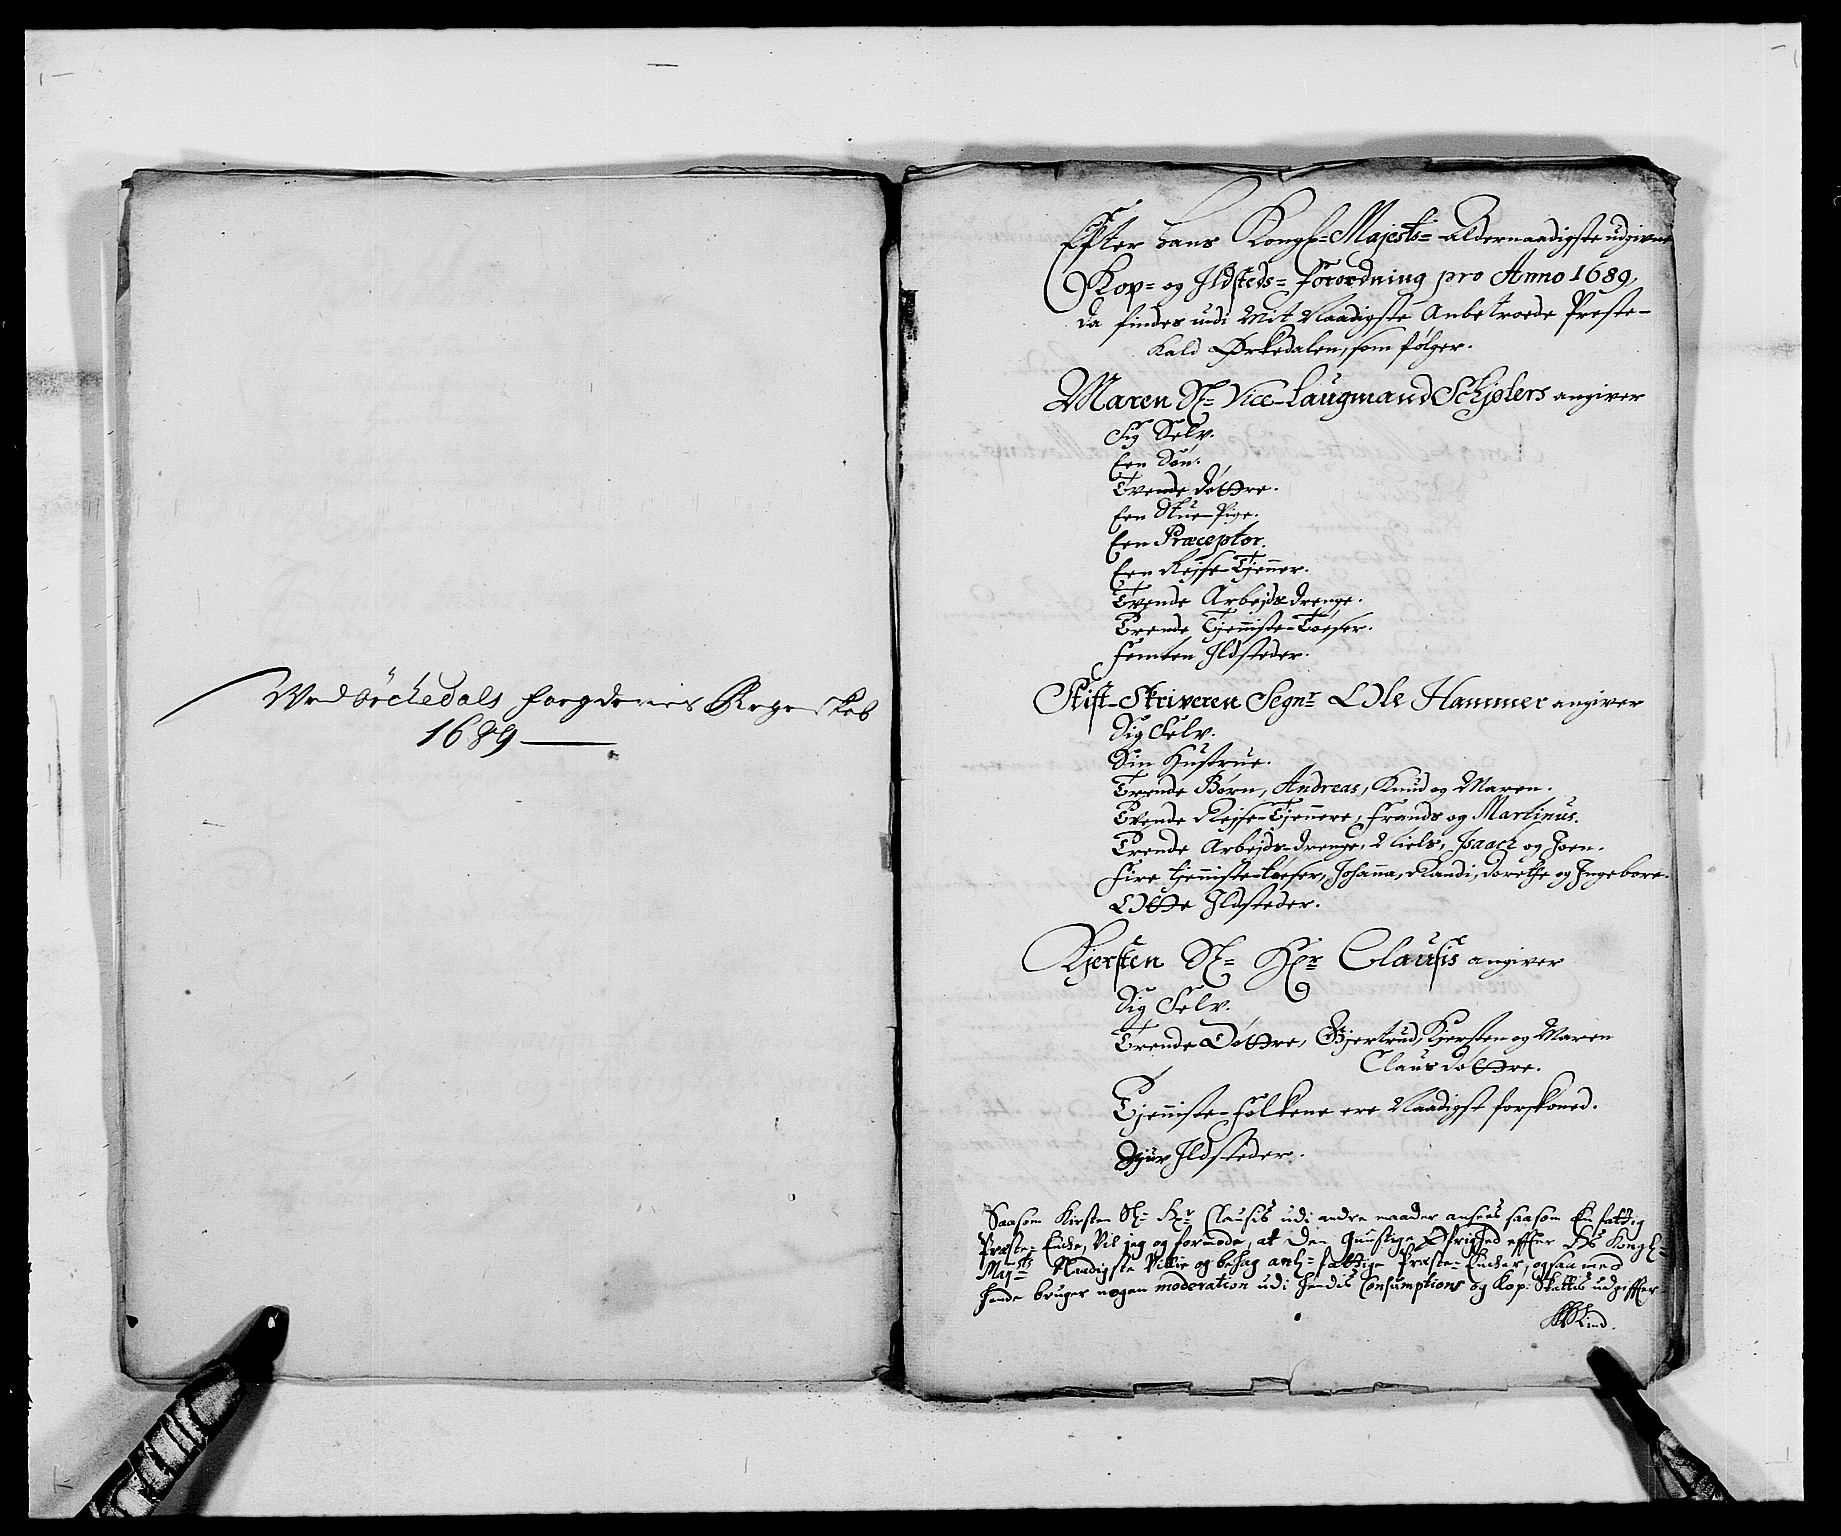 Ved Örchedals foegderies Regenskab
1689
Effter hans Kongl= Majests= aldernaadigste udgivne
Kop= og Ildsteds= forordning pro Anno 1689,
da findes udi Mit Naadigste Anbetroede Preste-
kald Ørkedalen, som følger.
Maren Sl= Vice-Laugmand Schjølers angiver
Sig Selv.
Een Søn.
Tvende døttre.
Een Stue-Pige.
Een Præceptor.
Een Rejse-Tjenner.
Tvende Arbejds-drenge.
Trende Tjenniste-Tøeser.
femten Ildsteder.
Stift-Skriveren Segnr Ole Hammer angiver
Sig Selv.
Sin Hustrue.
Trende Børn, Andreas, Knud og Maren.
Tvende Rejse-Tjennere, Frands og Martinus.
Trende Arbejds-drenge, Niels, Isaach og Joen.
fire tjenniste-tøeser, Johanna, Randi, dorethe og Ingebore.
Otte Ildsteder.
Kjersten Sl= Hr Clausis angiver
Sig Selv.
Trende Døttre, Gjertrud, Kjersten og Maren
Clausdøttre.
Tjenniste-folkene ere Naadigst forskoned.
Ildsteder.
Saasom Kirsten Sl= Hr Clausis udi andre maader ansees saasom En fattig
Præste-Encke, Vil jeg og formode, at den gunstige Øfrighed effter Ds Kongl=
Majts Naadigste Villie og behag anl= fattige Præste-Encker, ogsaa med
hende bruger nogen moderation udi hendis Consumptions og Kop-Skattis udgiffter.
Lind.